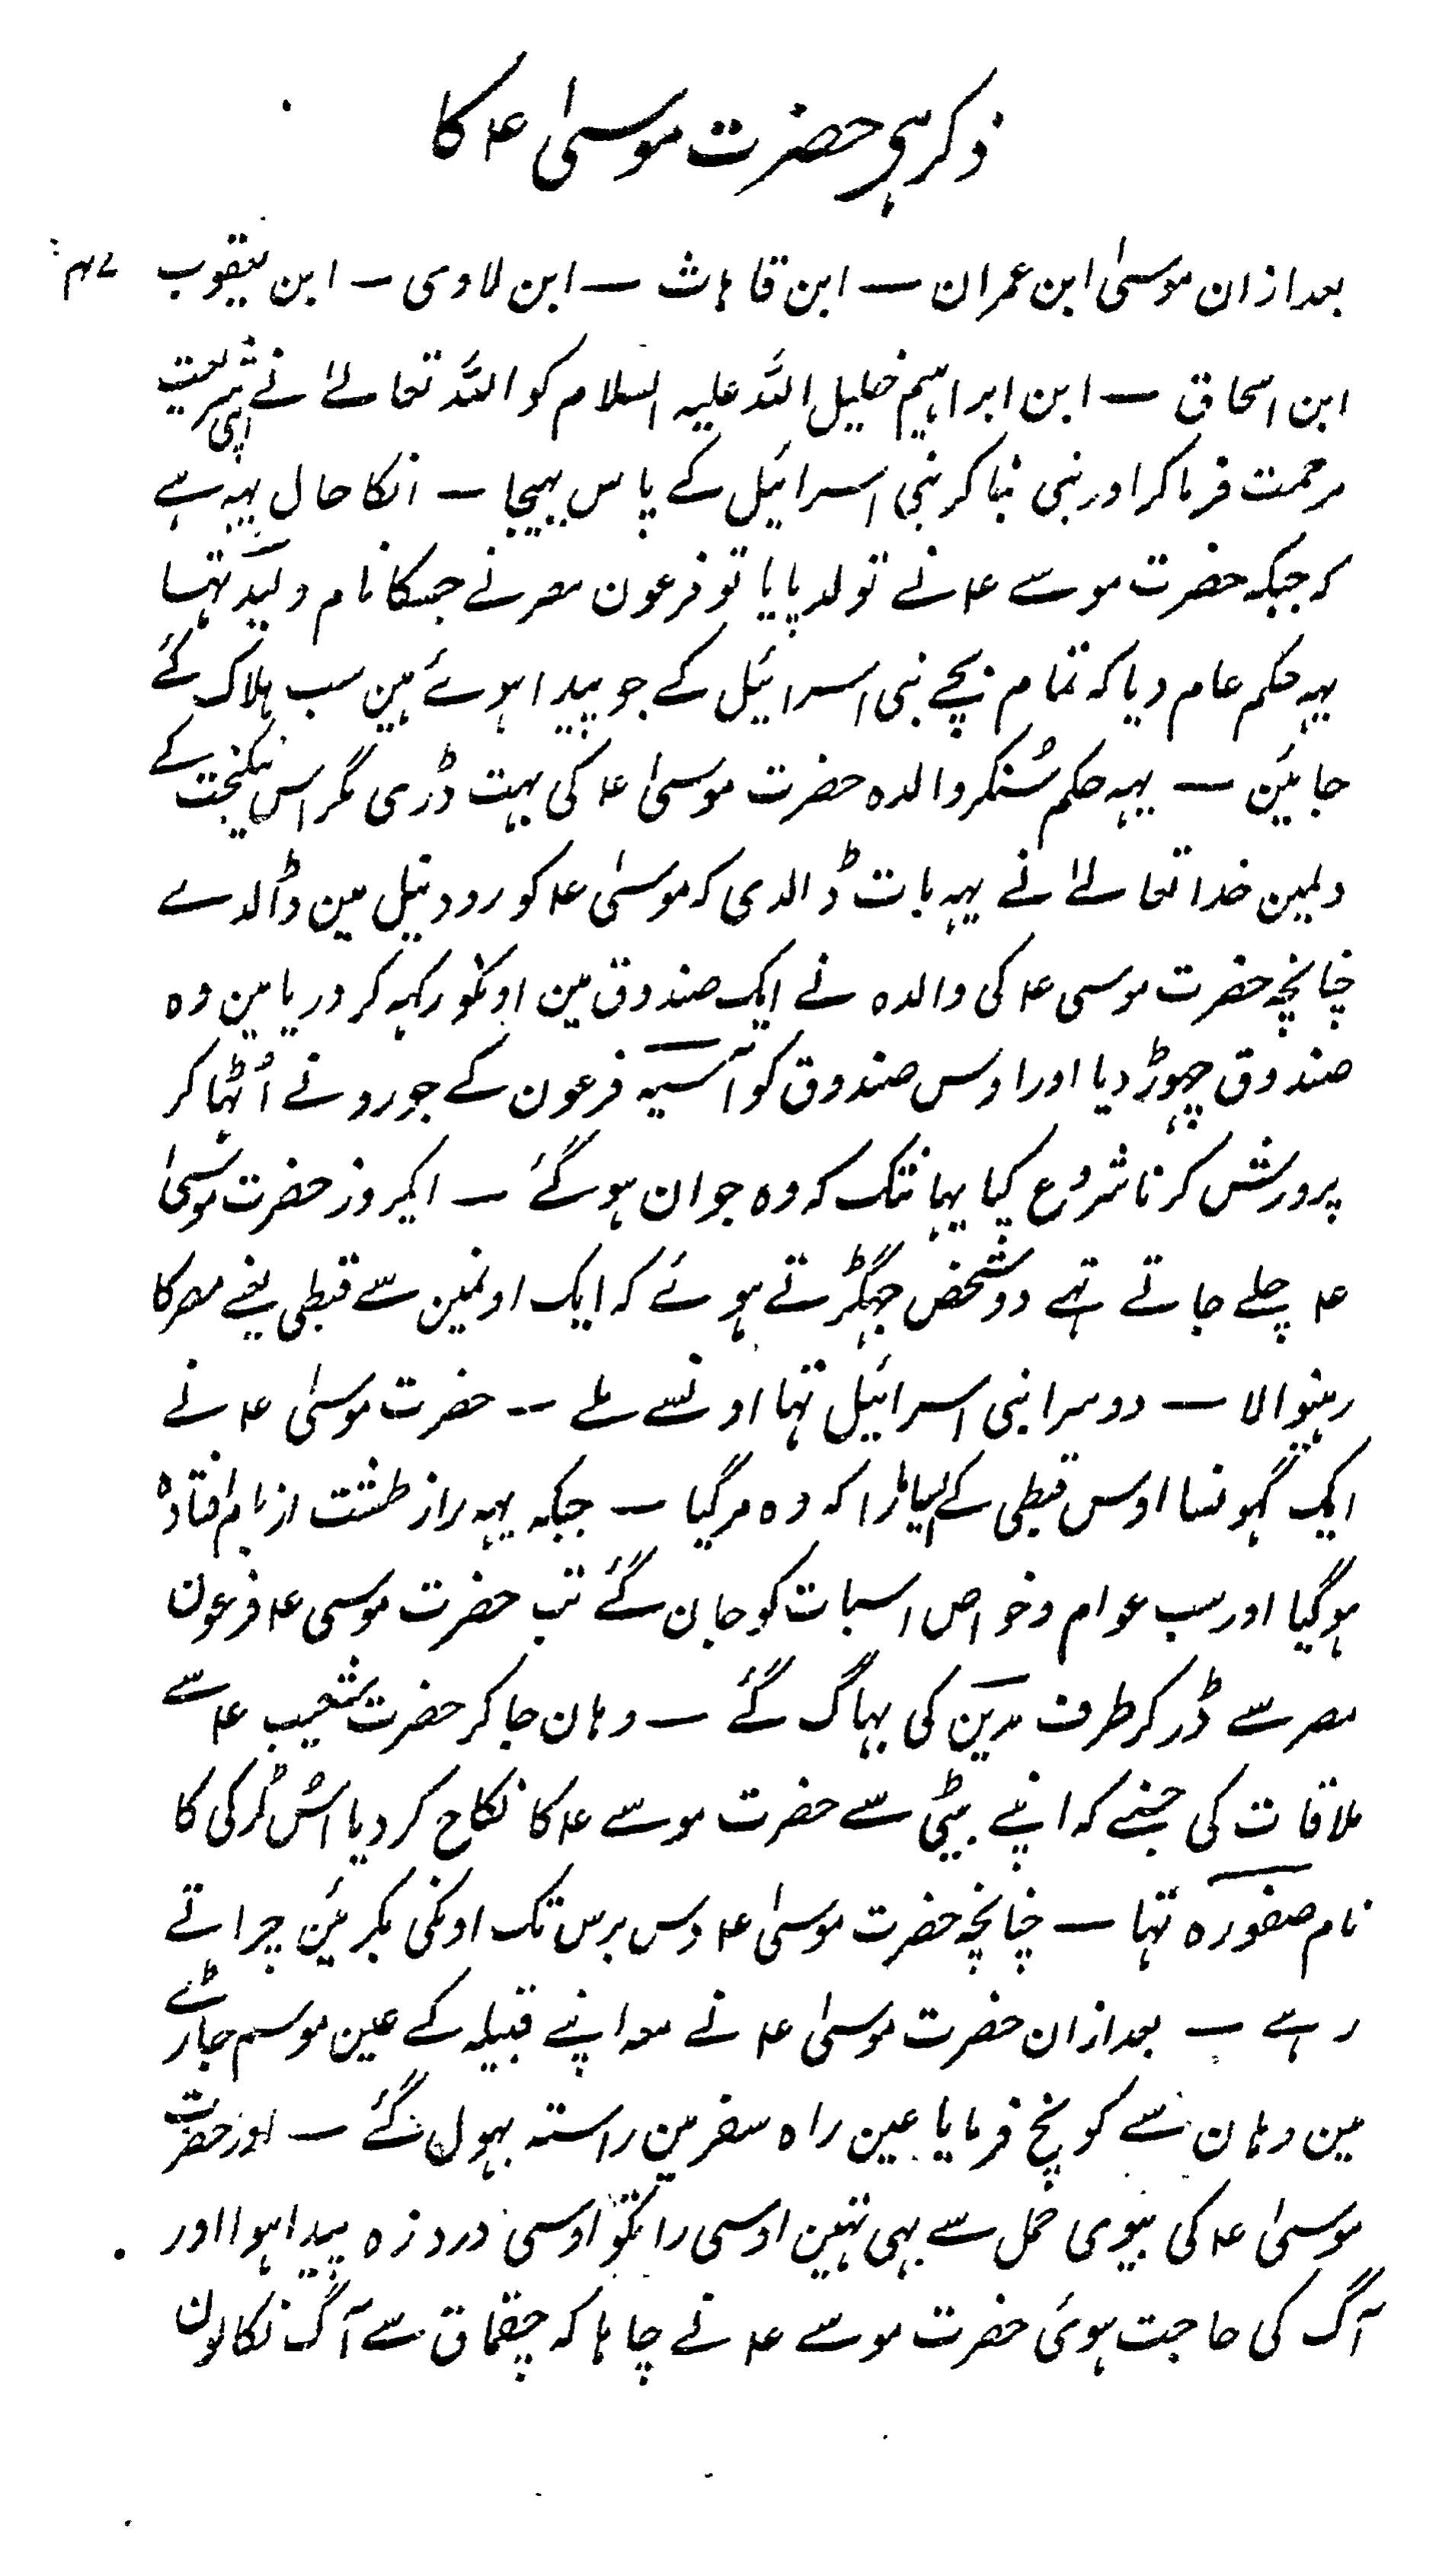 ذکر ہی حضرت موسیٰ ۴ کا
بعد ازان موسیٰ ابن عمران — ابن قاہاث — ابن لاوی — ابن یعقوب
ابن اسحاق — ابن ابراہیم خلیل اللہ علیہ السلام کو اللہ تعالےٰ نے اپنی شریعت
مرحمت فرما کر اور نبی بنا کر بنی اسرائیل کے پاس بہیجا — انکا حال یہہ ہے
کہ جبکہ حضرت موسے ۴ نے تولد پایا تو فرعون مصر نے جسکا نام ولید تہا
یہہ حکم عام دیا کہ تمام بچے بنی اسرائیل کے جو پیدا ہوئے ہین سب ہلاک کئے
جائین — یہہ حکم سُنکر والدہ حضرت موسیٰ ۴ کی بہت ڈری مگر اس نیکبخت کے
دلمین خدا تعالےٰ نے یہہ بات ڈالدی کہ موسیٰ ۴ کو رود نیل مین ڈالدے
چنانچہ حضرت موسی ۴ کی والدہ نے ایک صندوق مین اونکو رکہہ کر دریا مین وہ
صندوق چہوڑ دیا اور اوس صندوق کو آسیہ فرعون کے جورو نے اُٹہا کر
پرورش کرنا شروع کیا یہانتک کہ وہ جوان ہوگئے — ایکروز حضرت موسیٰ
۴ چلے جاتے تہے دو شخص جہگڑتے ہوئے کہ ایک اونمین سے قبطی یعنے مصر کا
رہنیوالا — دوسرا بنی اسرائیل تہا اونسے ملے — حضرت موسیٰ ۴ نے
ایک گہونسا اوس قبطی کے ایسا مارا کہ وہ مر گیا — جبکہ یہہ راز طشت از بام افتادہ
ہوگیا اور سب عوام و خواص اسبات کو جان گئے تب حضرت موسی ۴ فرعون
مصر سے ڈر کر طرف مدین کی بہاگ گئے — وہان جا کر حضرت شعیب ۴ سے
ملاقات کی جسنے کہ اپنے بیٹی سے حضرت موسے ۴ کا نکاح کر دیا اس لڑکی کا
نام صفورہ تہا — چنانچہ حضرت موسیٰ ۴ دس برس تک اونکی بکریئن چراتے
رہے — بعد ازان حضرت موسیٰ ۴ نے معہ اپنے قبیلہ کے عین موسم جاڑے
مین وہان سے کونچ فرمایا عین راہ سفر مین راستہ بہول گئے — اور حضرت
موسیٰ ۴ کی بیوی حمل سے بہی تہین اوسی راتکو اوسی دردزہ پیدا ہوا اور
آگ کی حاجت ہوئی حضرت موسے ۴ نے چاہا کہ چقماق سے آگ نکالون